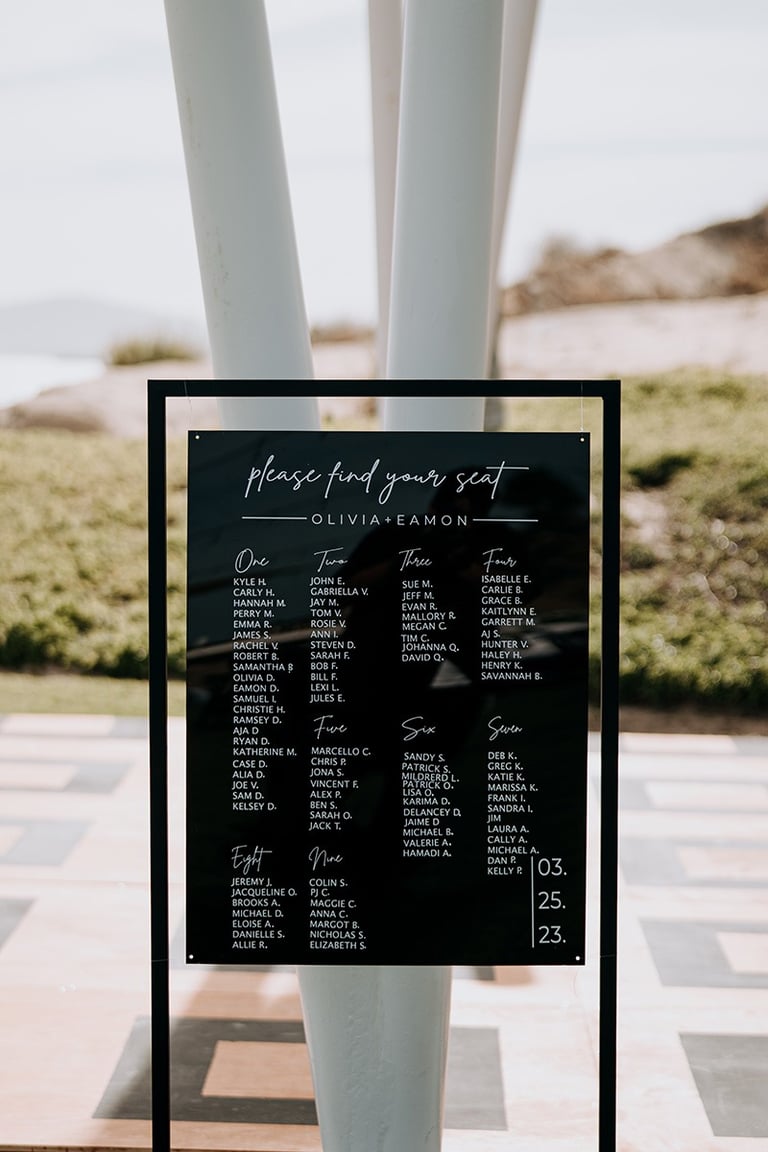 please find your seat
OLIVIA+EAMON
One
KYLE H.
CARLY H.
HANNAH M.
PERRY M.
EMMA R.
JAMES S.
RACHEL V.
ROBERT B.
SAMANTHA P.
OLIVIA D.
EAMON D.
SAMUEL I.
CHRISTIE H.
RAMSEY D.
AJA D
RYAN D.
KATHERINE M.
CASE D.
ALIA D.
JOE V.
SAM D.
KELSEY D.
Two
JOHN E.
GABRIELLA V.
JAY M.
TOM V.
ROSIE V.
ANN I.
STEVEN D.
SARAH F.
BOB F.
BILL F.
LEXI L.
JULES E.
Three
SUE M.
JEFF M.
EVAN R.
MALLORY R.
MEGAN C.
TIM C.
JOHANNA Q.
DAVID Q.
Four
ISABELLE E.
CARLIE B.
GRACE B.
KAITLYNN E.
GARRETT M.
AJ S.
HUNTER V.
HALEY H.
HENRY K.
SAVANNAH B.
Five
MARCELLO C.
CHRIS P.
JONA S.
VINCENT F.
ALEX P.
BEN S.
SARAH O.
JACK T.
Six
SANDY S.
PATRICK S.
MILDRERD L.
PATRICK O.
LISA O.
KARIMA D.
DELANCEY D.
JAIME D
MICHAEL B.
VALERIE A.
HAMADI A.
Seven
DEB K.
GREG K.
KATIE K.
MARISSA K.
FRANK I.
SANDRA I.
JIM
LAURA A.
CALLY A.
MICHAEL A.
DAN P.
KELLY P.
Eight
JEREMY J.
JACQUELINE O.
BROOKS A.
MICHAEL D.
ELOISE A.
DANIELLE S.
ALLIE R.
Nine
COLIN S.
PJ C.
MAGGIE C.
ANNA C.
MARGOT B.
NICHOLAS S.
ELIZABETH S.
03.
25.
23.